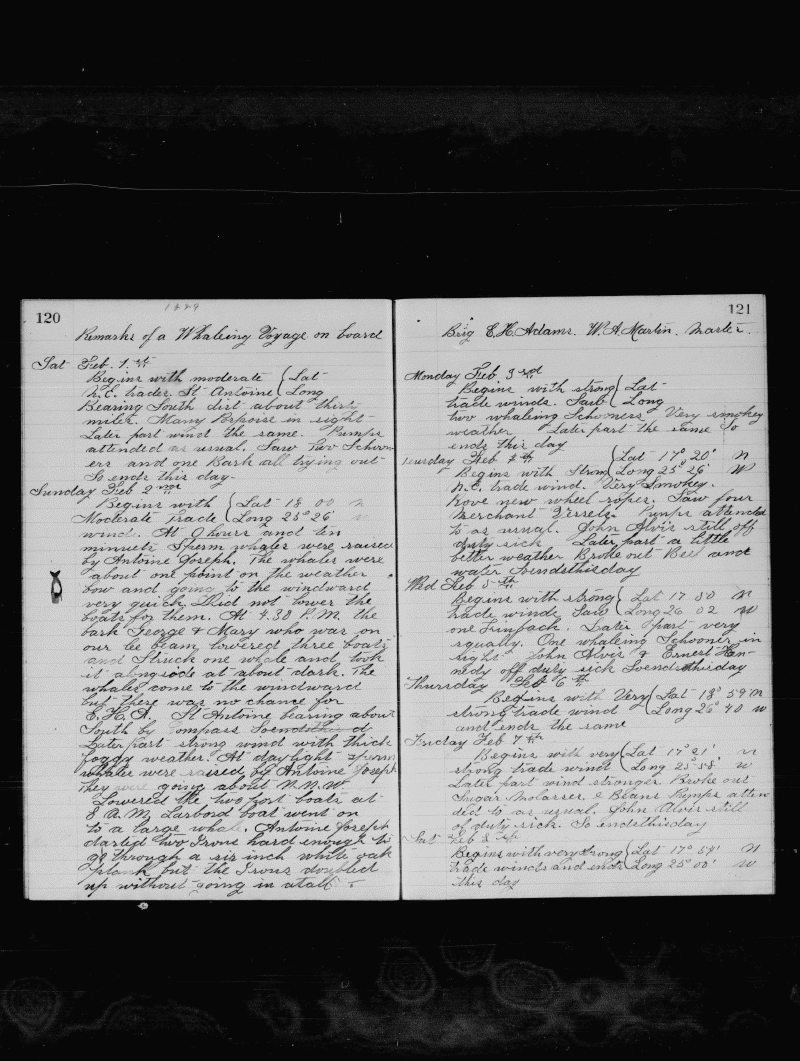 120
Remarks of a Whaleing Voyage on board
Sat Feb. 1.st
Begins with moderate { Lat
N.E. trades. St Antoine { Long
Bearing South dist about thirty
miles. Many Porpoise in sight
Later part wind the same. Pumps
attended as usual. Saw two Schoon
ers and one Bark all trying out
So ends this day-
Sunday Feb 2nd
Begins with { Lat 18 00 N
Moderate trade { Long 25° 26'
wind. At 9 hours and ten
minuets Sperm whales were raised
by Antoine Joseph. The whales were
about one point on the weather
bow and going to the windward
very quick. Did not lower the
boats for them. At 4.30 P.M. the
bark George & Mary who was on
our lee beam lowered three boats
and Struck one whale and took
it alongside at about dark. The
whales come to the windward
but there was no chance for
E.H.A. St Antoine bearing about
South by Compass So ends this d
Later part strong wind with thick
foggy weather. At daylight sperm
whales were raised by Antoine Joseph
They were going about N.N.W.
Lowered the two port boats at
8 A.M. Larbord boat went on
to a large whale. Antoine Joseph
darted two Irons hard enough to
go through a six inch white oak
plank but the Irons doubled
up without going in atall
121
Brig E.H. Adams. W.A. Martin. Master.
Monday Feb 3rd
Begins with strong { Lat
trade winds. Saw { Long
two whaling Schooners Very smokey
weather Later part the same So
ends this day
Tuesday Feb 4th { Lat 17° 20' N
Begins with Strong { Long 25° 26' W
N.E. trade wind. Very Smokey.
Rove new wheel ropes. Saw four
Merchant Vessels. Pumps attended
to as usual. John Alvis still off
duty sick Later part a little
better weather Broke out Beef and
water So ends this day
Wed Feb 5th
Begins with strong { Lat 17 50 N
trade winds Saw { Long 26 02 W
one Finback. Later part very
squally. One whaling Schooner in
sight John Alvis & Ernest Ken-
nedy off duty sick So ends this day
Thursday Feb 6th
Begins with Very { Lat 18° 59 N
strong trade wind { Long 26° 40 W
and ends the same
Friday Feb 7th
Begins with very { Lat 17° 21' N
strong trade winds { Long 25° 58' W
Later part wind stronger Broke out
Sugar Molasses & Beans Pumps atten
ded to as usual. John Alvis still
of duty sick. So ends this day
Sat Feb 8th
Begins with very strong { Lat 17° 54' N
trade winds and ends { Long 25° 00' W
this day